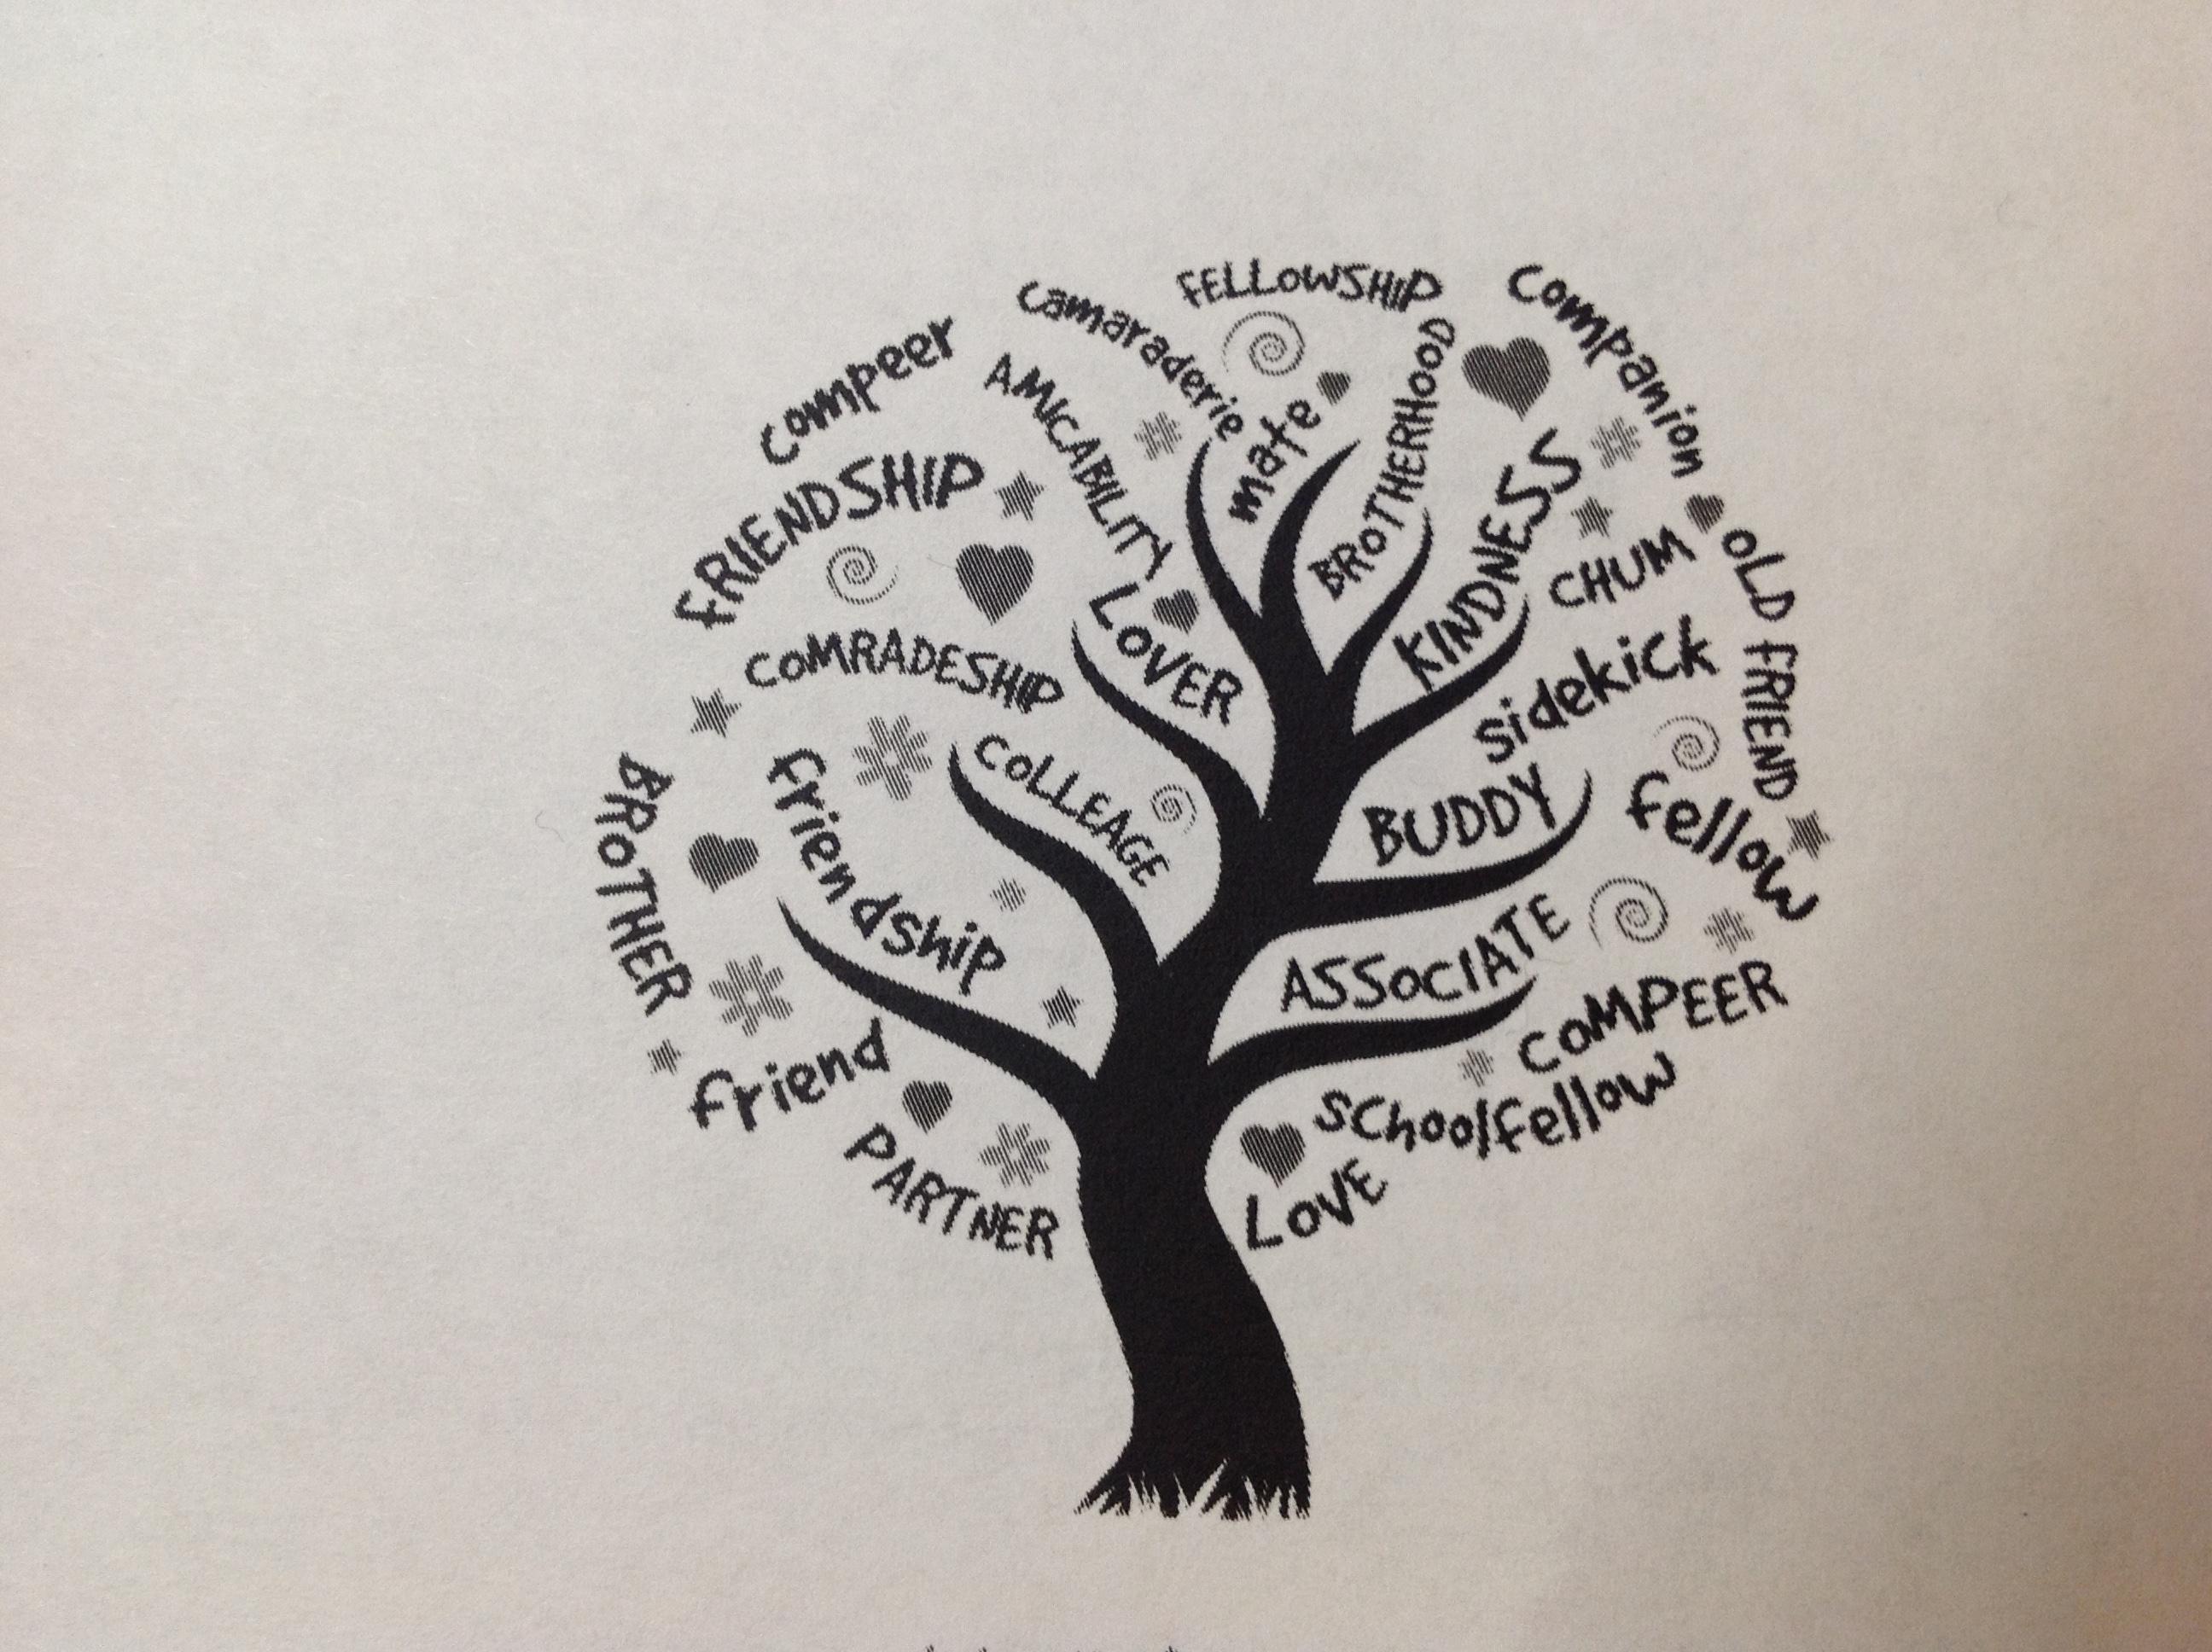 FELLOWSHIP
Companion
camaraderie
compeer
AMICABILITY
mate
BROTHERHOOD
FRIENDSHIP
KINDNESS
CHUM
OLD FRIEND
LOVER
COMRADESHIP
sidekick
COLLEAGE
friendship
BROTHER
BUDDY
fellow
ASSOCIATE
COMPEER
friend
schoolfellow
PARTNER
LOVE